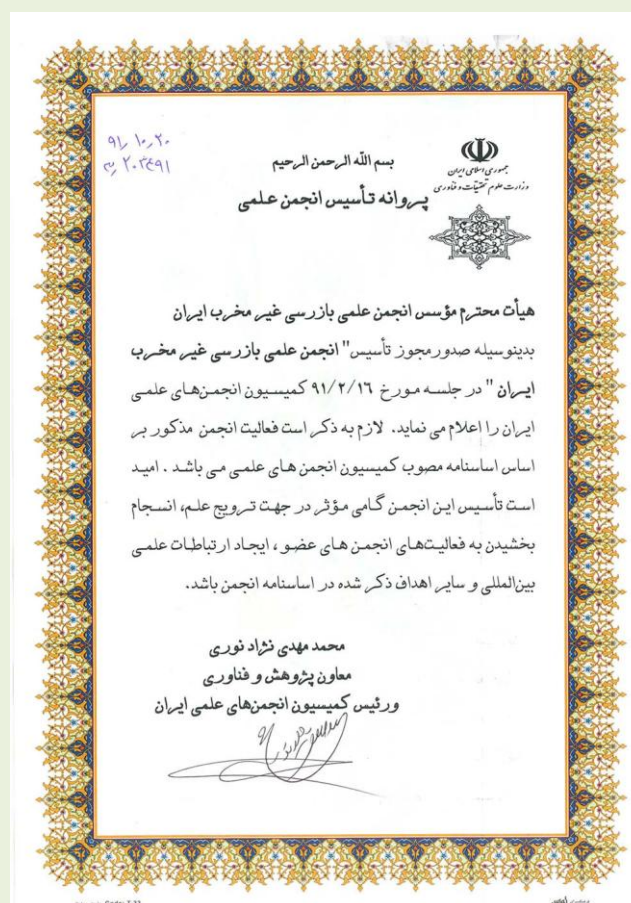 ۹۱/۱۰/۲۰
بسم الله الرحمن الرحیم
جمهوری اسلامی ایران
وزارت علوم تحقیقات و فناوری
پروانه تأسیس انجمن علمی
هیأت محترم مؤسس انجمن علمی بازرسی غیر مخرب ایران
بدینوسیله صدور مجوز تأسیس" انجمن علمی بازرسی غیر مخرب
ایران " در جلسه مورخ ۹۱/۲/۱۶ کمیسیون انجمن‌های علمی
ایران را اعلام می نماید. لازم به ذکر است فعالیت انجمن مذکور بر
اساس اساسنامه مصوب کمیسیون انجمن های علمی می باشد . امید
است تأسیس این انجمن گامی مؤثر در جهت ترویج علم، انسجام
بخشیدن به فعالیت‌های انجمن های عضو ، ایجاد ارتباطات علمی
بین‌المللی و سایر اهداف ذکر شده در اساسنامه انجمن باشد.
محمد مهدی نژاد نوری
معاون پژوهش و فناوری
ورئیس کمیسیون انجمن‌های علمی ایران